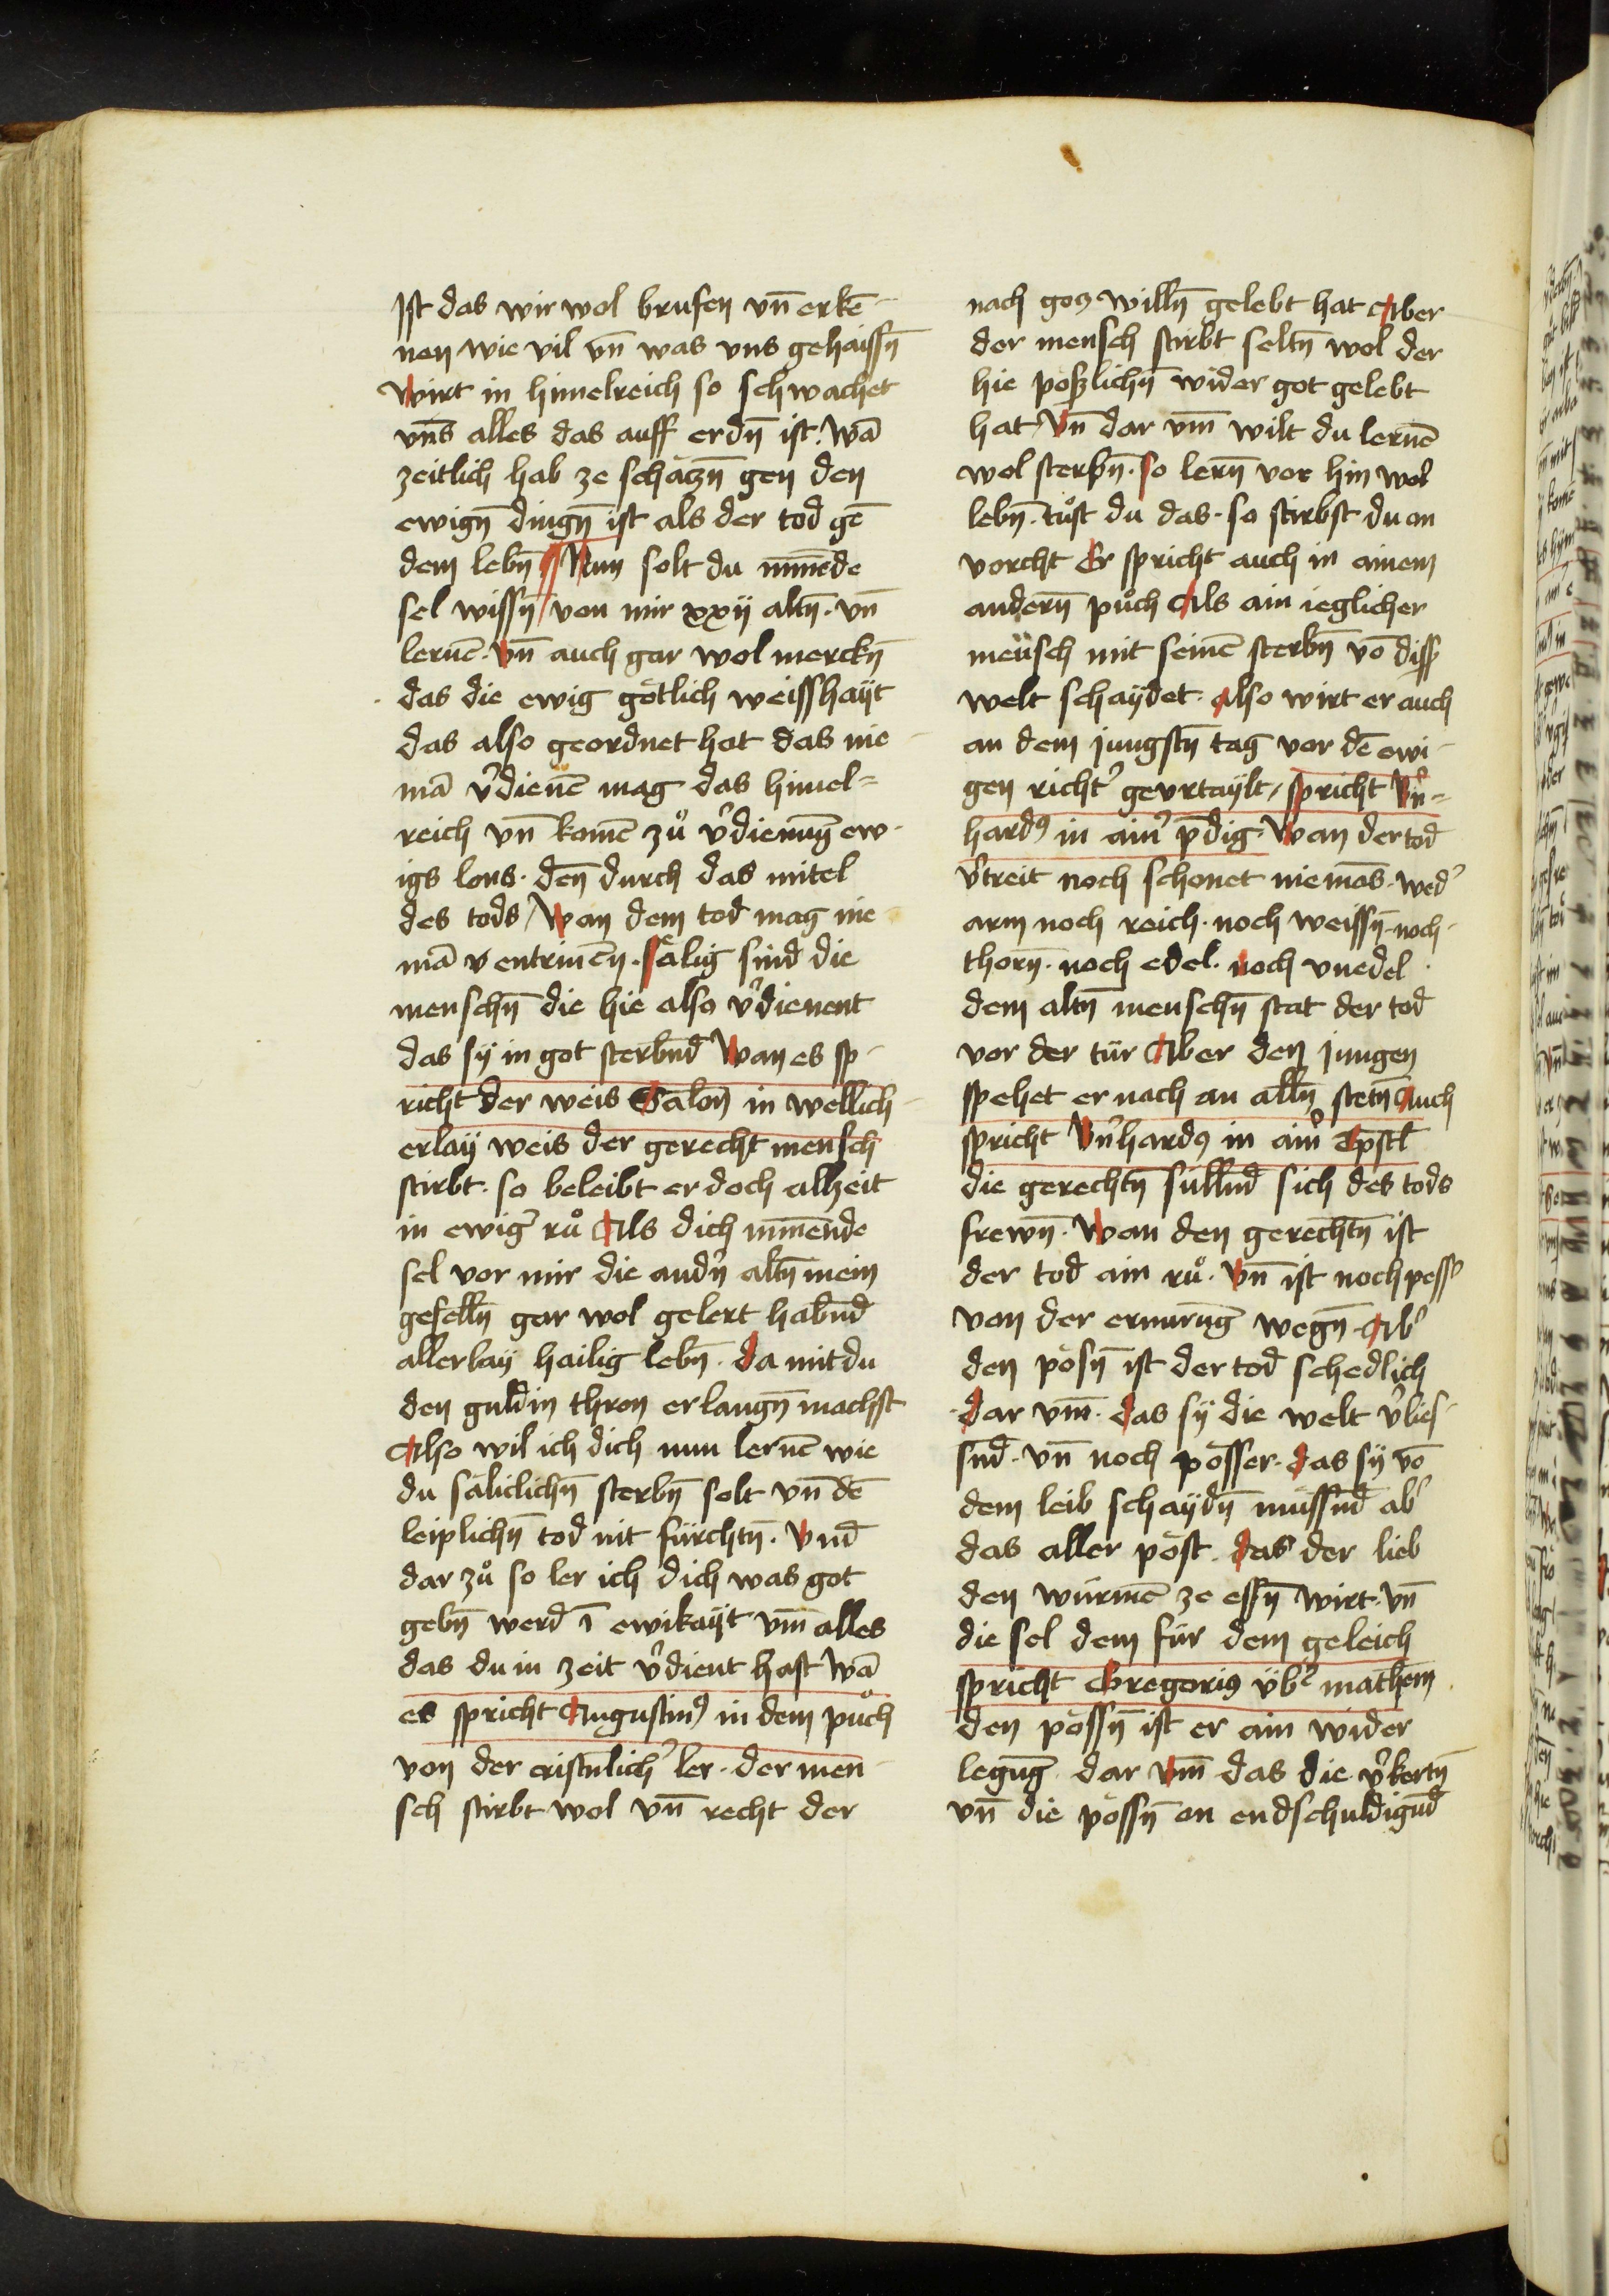 Ist das wir wol brufen vn̄ erkē-
nen wie vil vn̄ was vns gehaissn̄
wirt in himelreich so schwachet
vn̄s alles das auff erdn̄ ist. wā
zeitlich hab ze schäczn̄ gen den
ewign̄ dingn̄ ist als der tod gē
dem lebn̄ Nun solt du mīnēde
sel wissn̄ von mir xxij altn̄. vn̄
lernē. vn̄ auch gar wol merckn̄
das die ewig götlich weisshaÿt
das also geordnet hat das nie-
mā v̾dienē mag das himel=
reich vn̄ komē zů v̾dienūg ew-
igs lons. den̄ durch das mitel
des tods / wan dem tod mag nie-
mā v entrinēn. sälig sind die
menschn̄ die hie also v̾dienent
das sÿ in got sterbn̄d wan es sp-
richt der weis Salon̄ in wellich-
erlaÿ weis der gerecht mensch
stirbt. so beleibt er doch alzeit
in ewig̾ rů Als dich mīnende
sel vor mir die and̾n altn̄ mein
geselln̄ gar wol gelert habn̄d
allerlaÿ hailig lebn̄. da mit du
den guldin thron erlangn̄ machst
Also wil ich dich nun lernē wie
du säliclichn̄ sterbn̄ solt vn̄ dē
leiplichn̄ tod nit fürchtn̄. vnd
dar zů so ler ich dich was got
gebn̄ werd ī ewikaÿt vm̄ alles
das du in zeit v̾dient hast wā
es spricht Augustin9 in dem půch
von der cristnlich̾ ler. der men-
sch stirbt wol vn̄ recht der
nach gocz willn̄ gelebt hat Aber
der mensch stirbt seltn̄ wol der
hie pößlichn̄ wider got gelebt
hat / vn̄ dar vm̄ wilt du lernē
wol sterbn̄. so lern̄ vor hin wol
lebn̄. tůst du das. so stirbst du on
vorcht Er spricht auch in ainem
andern̄ půch Als ain ieglicher
mensch mit seinē sterbn̄ vō diss̾
welt schaÿdet. Also wirt er auch
an dem jungstn̄ tag vor dē ewi-
gen richt̾ gevrtaÿlt, spricht B̾n=
hard9 in ain̾ p̄dig Wan der tod
v̾treit noch schonet niemās. wed̾
arm noch reich. noch weissn̄. noch
thorn̄. noch edel. noch vnedel.
dem altn̄ menschn̄ stat der tod
vor der tür Aber den jungen
spehet er nach an alln̄ stetn̄ Auch
spricht B̾nhard9 in ain̾ Epistl
die gerechtn̄ sülln̄d sich des tods
frewn̄. Wan den gerechtn̄ ist
der tod ain rů. vn̄ ist noch pess̾
von der ernurūg wegn̄ Ab̾
den pösn̄ ist der tod schedlich
dar vm̄. das sÿ die welt v̾lies-
sn̄d. vn̄ noch pösser. das sÿ vō
dem leib schaÿdn̄ müssn̄d ab̾
das aller pöst. das der lieb
den würmē ze essn̄ wirt. vn̄
die sel dem für dem geleich
spricht Gregori9 üb̾ mathem
den pössn̄ ist er ain wider
legūg dar vm̄ das die v̾kertn̄
vn̄ die pössn̄ on endschuldigūd